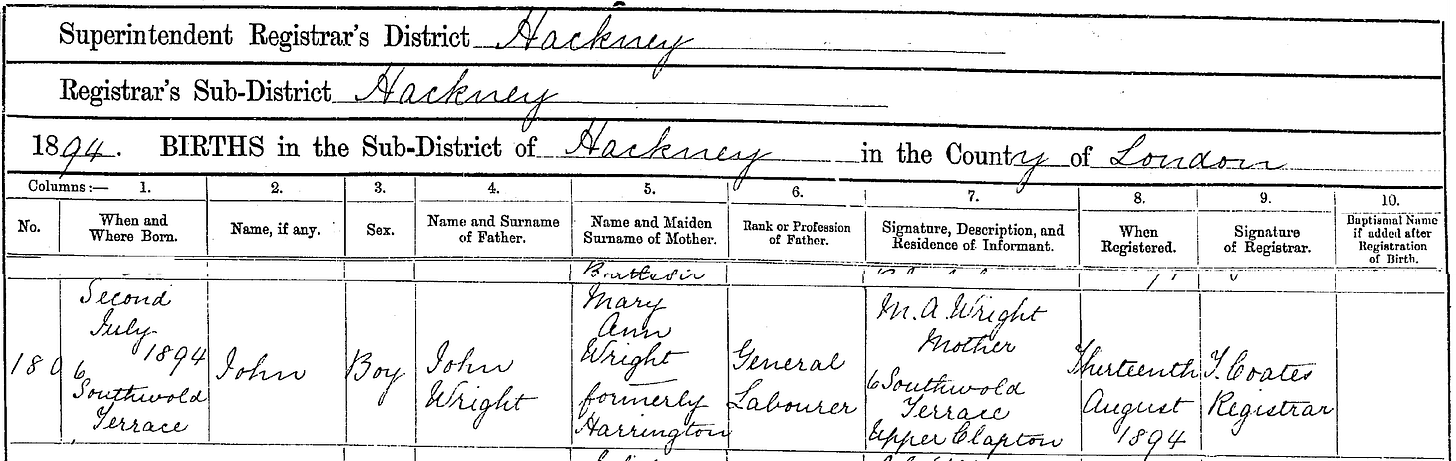 Superintendent Registrar's District Hackney
Registrar's Sub-District Hackney
1894. BIRTHS in the Sub-District of Hackney in the County of London
Columns:— 1. 2. 3. 4. 5. 6. 7. 8. 9. 10.
No.
When and
Where Born.
Name, if any.
Sex.
Name and Surname
of Father.
Name and Maiden
Surname of Mother.
Rank or Profession
of Father.
Signature, Description, and
Residence of Informant.
When
Registered.
Signature
of Registrar.
Baptismal Name
if added after
Registration
of Birth.
180
Second
July
1894
6
Southwold
Terrace
John
Boy
John
Wright
Mary
Ann
Wright
formerly
Harrington
General
Labourer
M. A. Wright
Mother
6 Southwold
Terrace
Upper Clapton
Thirteenth
August
1894
Coates
Registrar